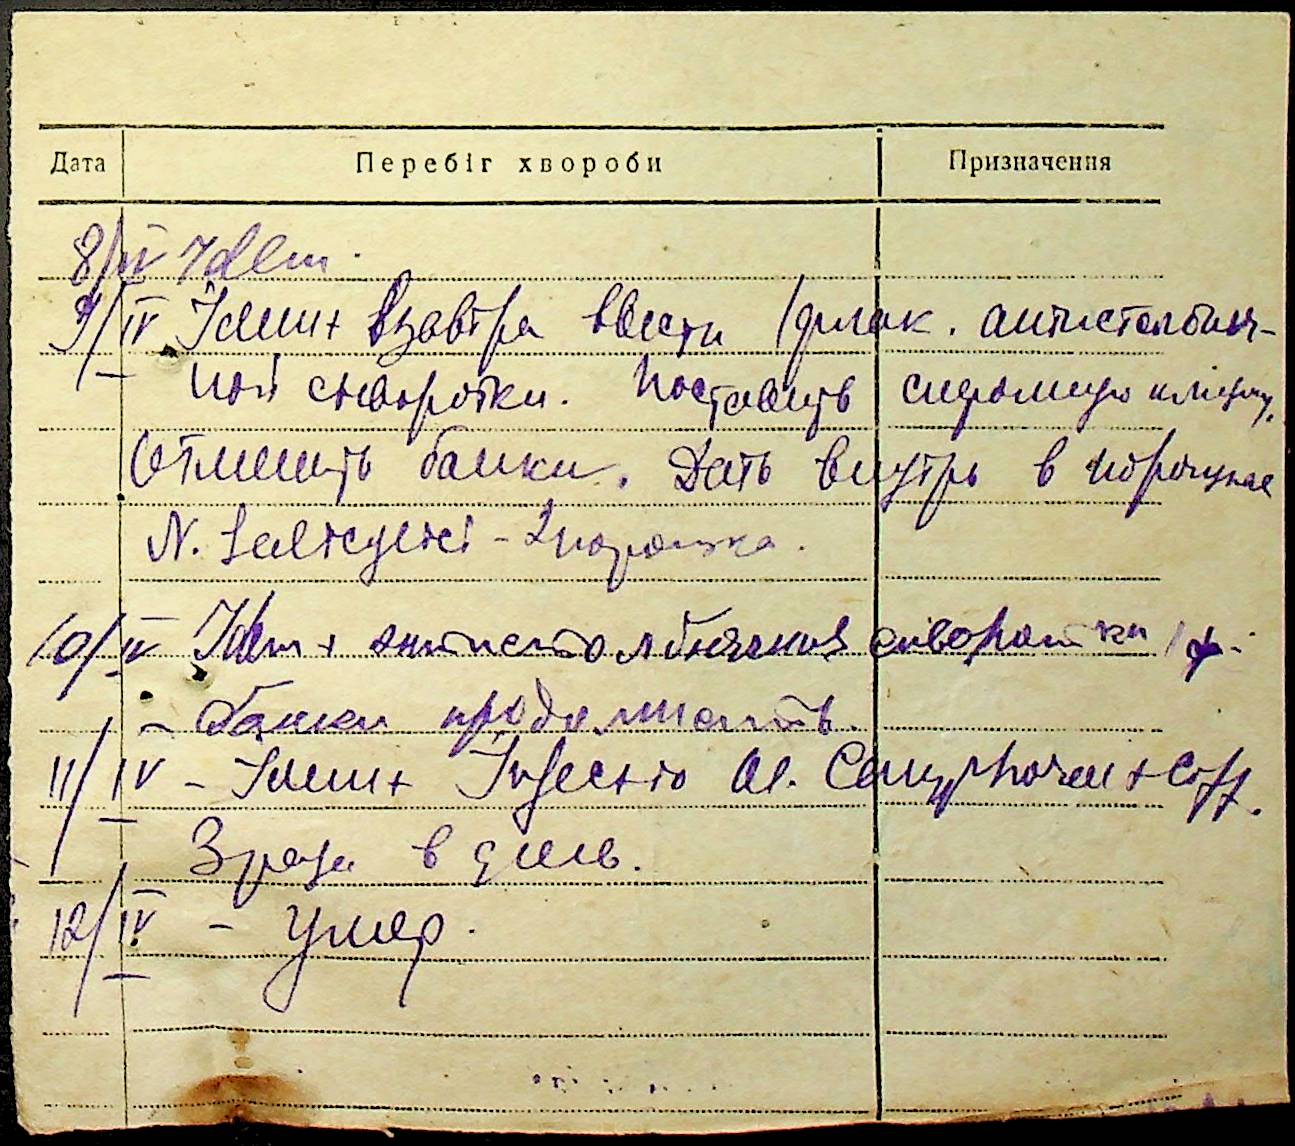 Дата Перебіг хвороби Призначення
8/IV Idem.
9/IV Idem + Взавтра ввести 1 флак. антистолбняч-
ной сыворотки. Поставить сифонную клизму.
Отменить банки. Дать внутрь в порошке
N. - 2 порошка.
10/IV Idem + антистолбнячная сиворотки 1 ф.
- банки продолжать.
11/IV - Idem + Injectio Ol. Camphorae + Coff.
3 раза в день.
12/IV - Умер.